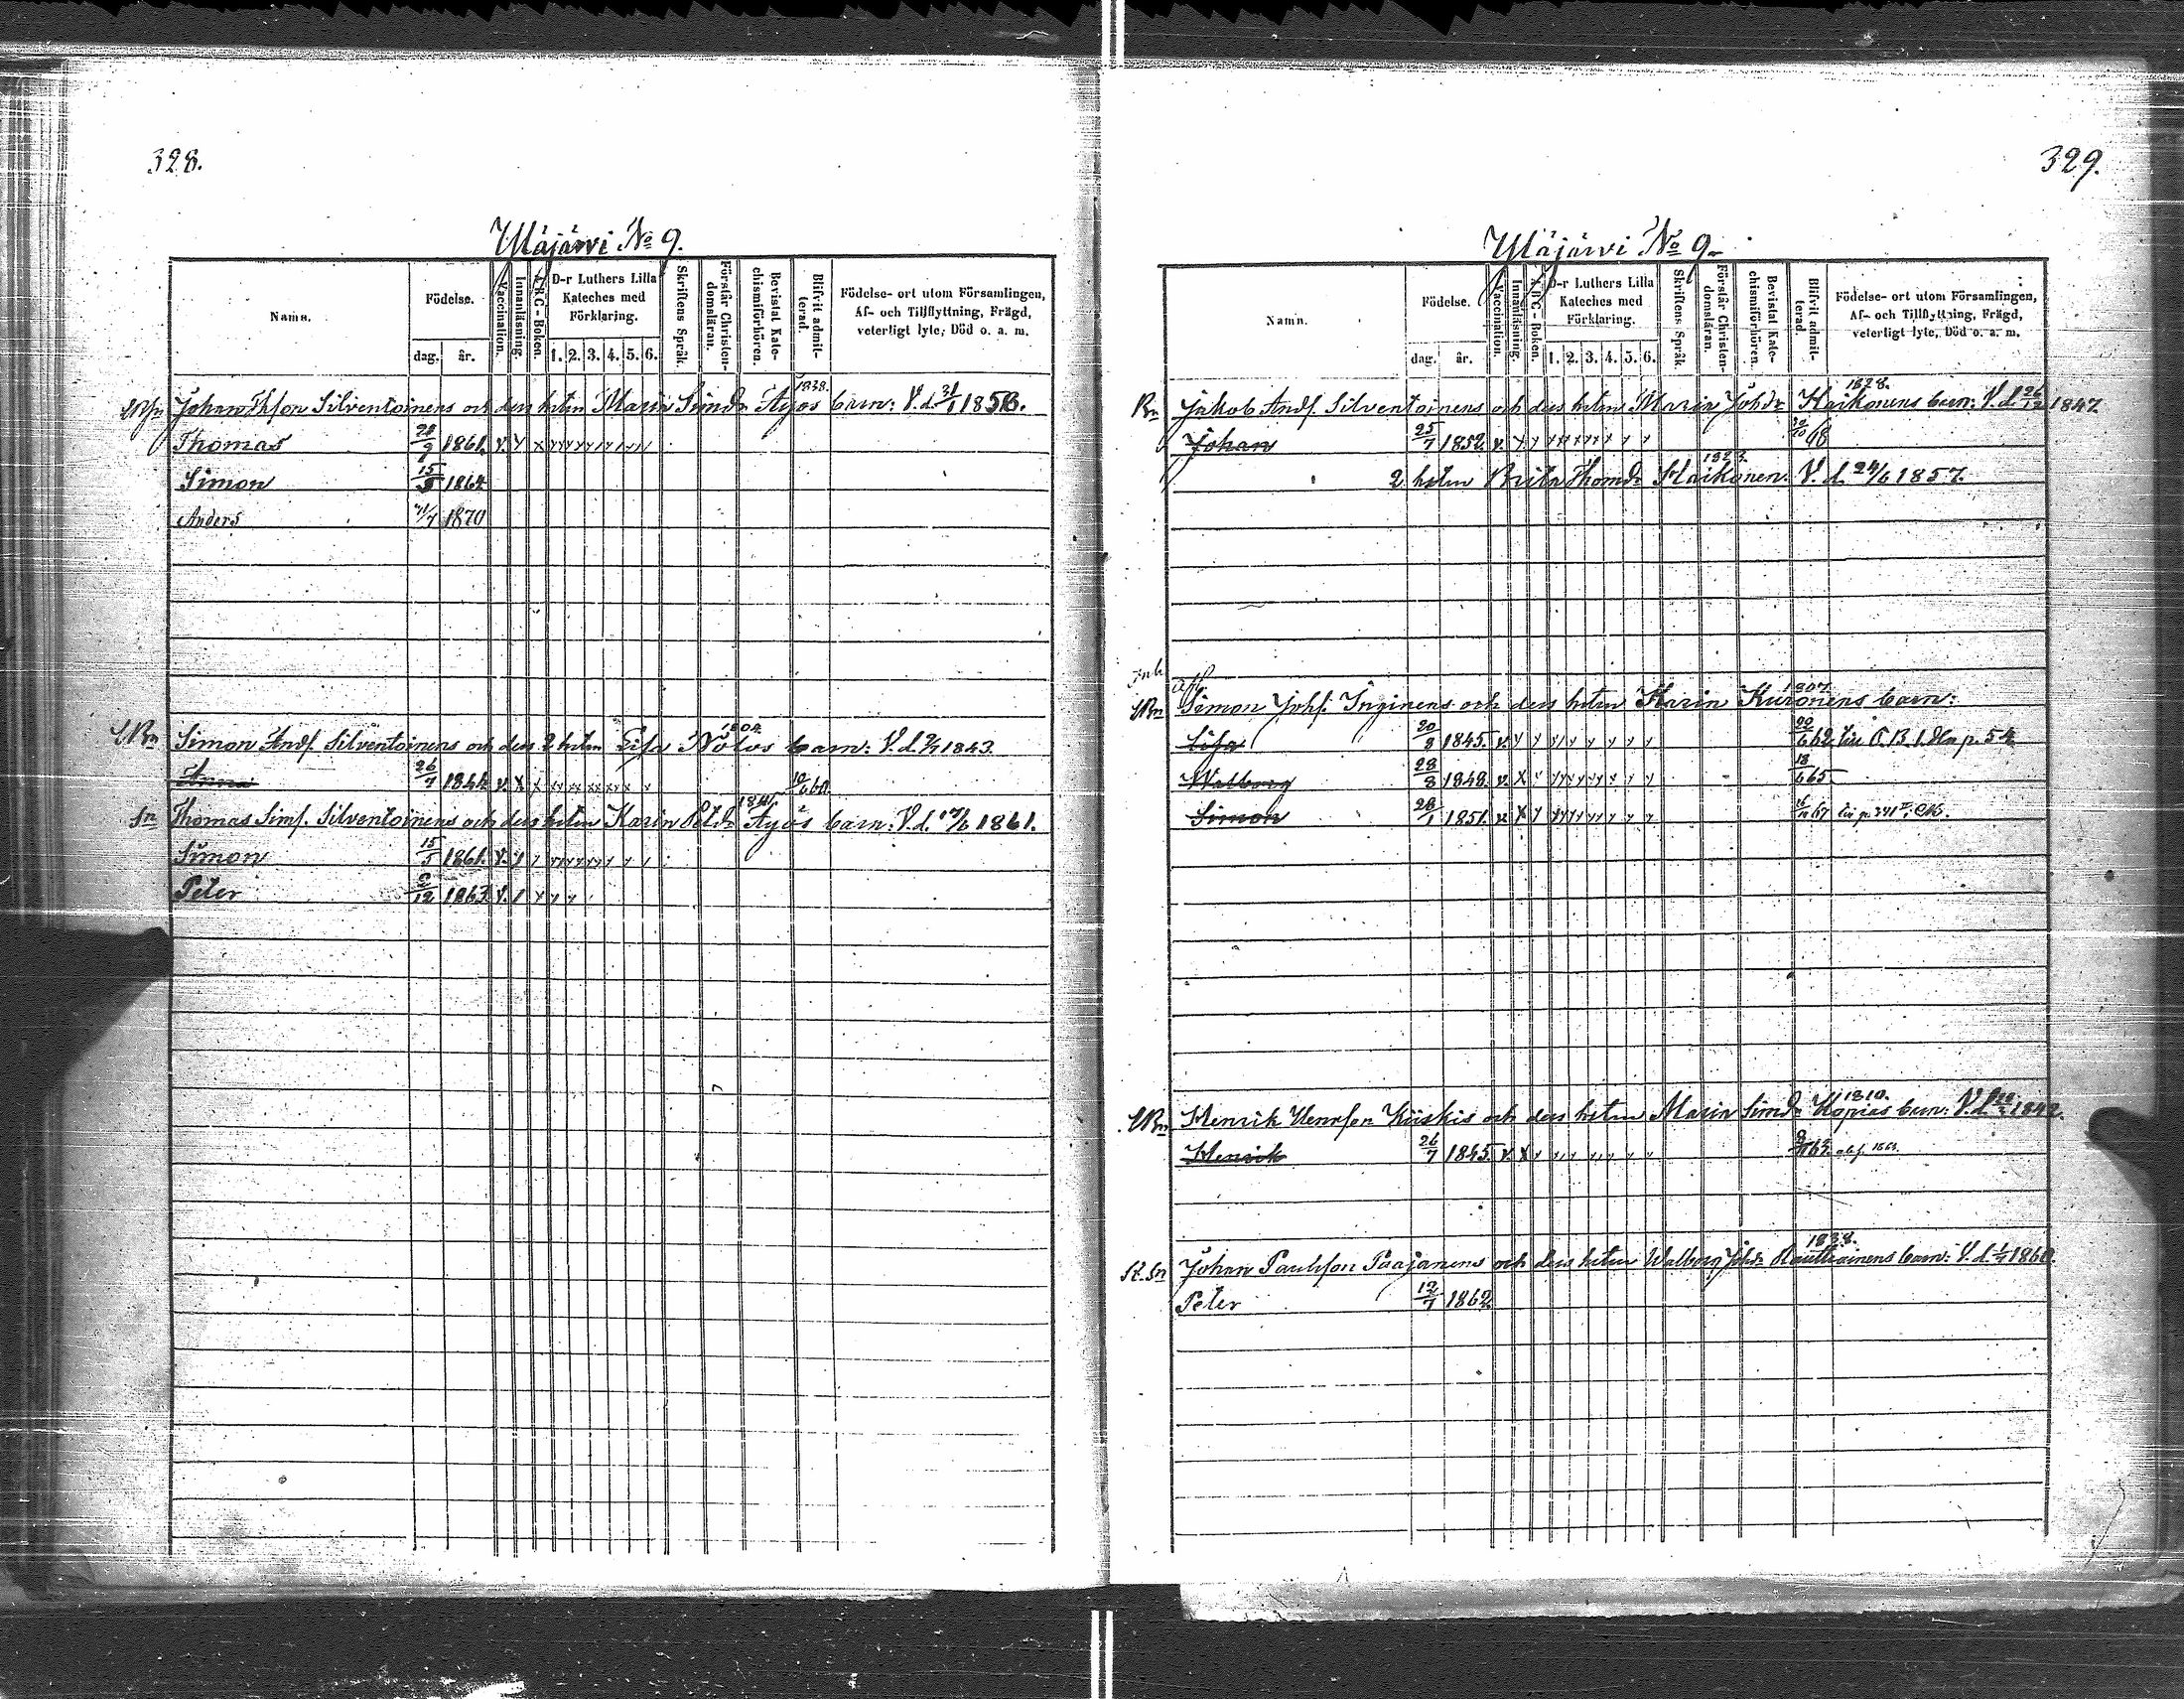 328.
Yläjärvi No 9.
Namn.
Födelse.
dag. år.
Vaccination.
Innanläsning.
A B C-Boken.
D-r Luthers Lilla Kateches med Förklaring.
1. 2. 3. 4. 5. 6.
Skriftens Språk.
Förstår Christendomsläran.
Bevistat Katechismiförhören.
Blifvit admitterad.
Födelse- ort utom Församlingen, Af- och Tillflyttning, Frägd, veterligt lyte, Död o. a. m.
1838.
Johan Thsson Silventoinens och dess hstru Maria Simdr Äyös barn: V.d. 31/1 1858.
Thomas 1861. v.
Simon 15 1864
Anders 1870
1804.
Simon Andf. Silventoinens och dess 2 hstru Lisa Nölös barn: V.d. 1843.
Anna 26/7 1844 v.
Sn Thomas Simf. Silventoinens och dess hstru Karin Petdr Äyös barn: V.d. 1861.
Simon 15/5 1861. v.
Peter 1863 v.
329.
Yläjärvi No 9.
Namn.
Födelse.
dag. år.
Vaccination.
Innanläsning.
A B C-Boken.
D-r Luthers Lilla Kateches med Förklaring.
1. 2. 3. 4. 5. 6.
Skriftens Språk.
Förstår Christendomsläran.
Bevistat Katechismiförhören.
Blifvit admitterad.
Födelse- ort utom Församlingen, Af- och Tillflyttning, Frägd, veterligt lyte, Död o. a. m.
1828.
Bn Jakob Andf. Silventoinens och dess hstru Maria Johdr Haikonens barn: V.d. 26/12 1847
Johan 25/7 1852. v. 68
2 hstru Brita Thomdr Haikonen. V.d. 24/6 1857.
Inh
1807
Simon Johf. Inginens och dess hstru Karin Kuronens barn:
Lisa 20/9 1845. v. 62 p. 54
Walborg 28/8 1848. v. 18/6 65
Simon 28/1 1851. v. 67 p. 341
1810.
Henrik Henrson Kiiskis och dess hstru Maria Simdr Kopias barn: V.d. 1842.
Henrik 26/7 1845. v.
1838.
Johan Paulsson Paajanens och dess hstru Walborg Johdr Rautiainens barn: V.d. 1860.
Peter 12/7 1862